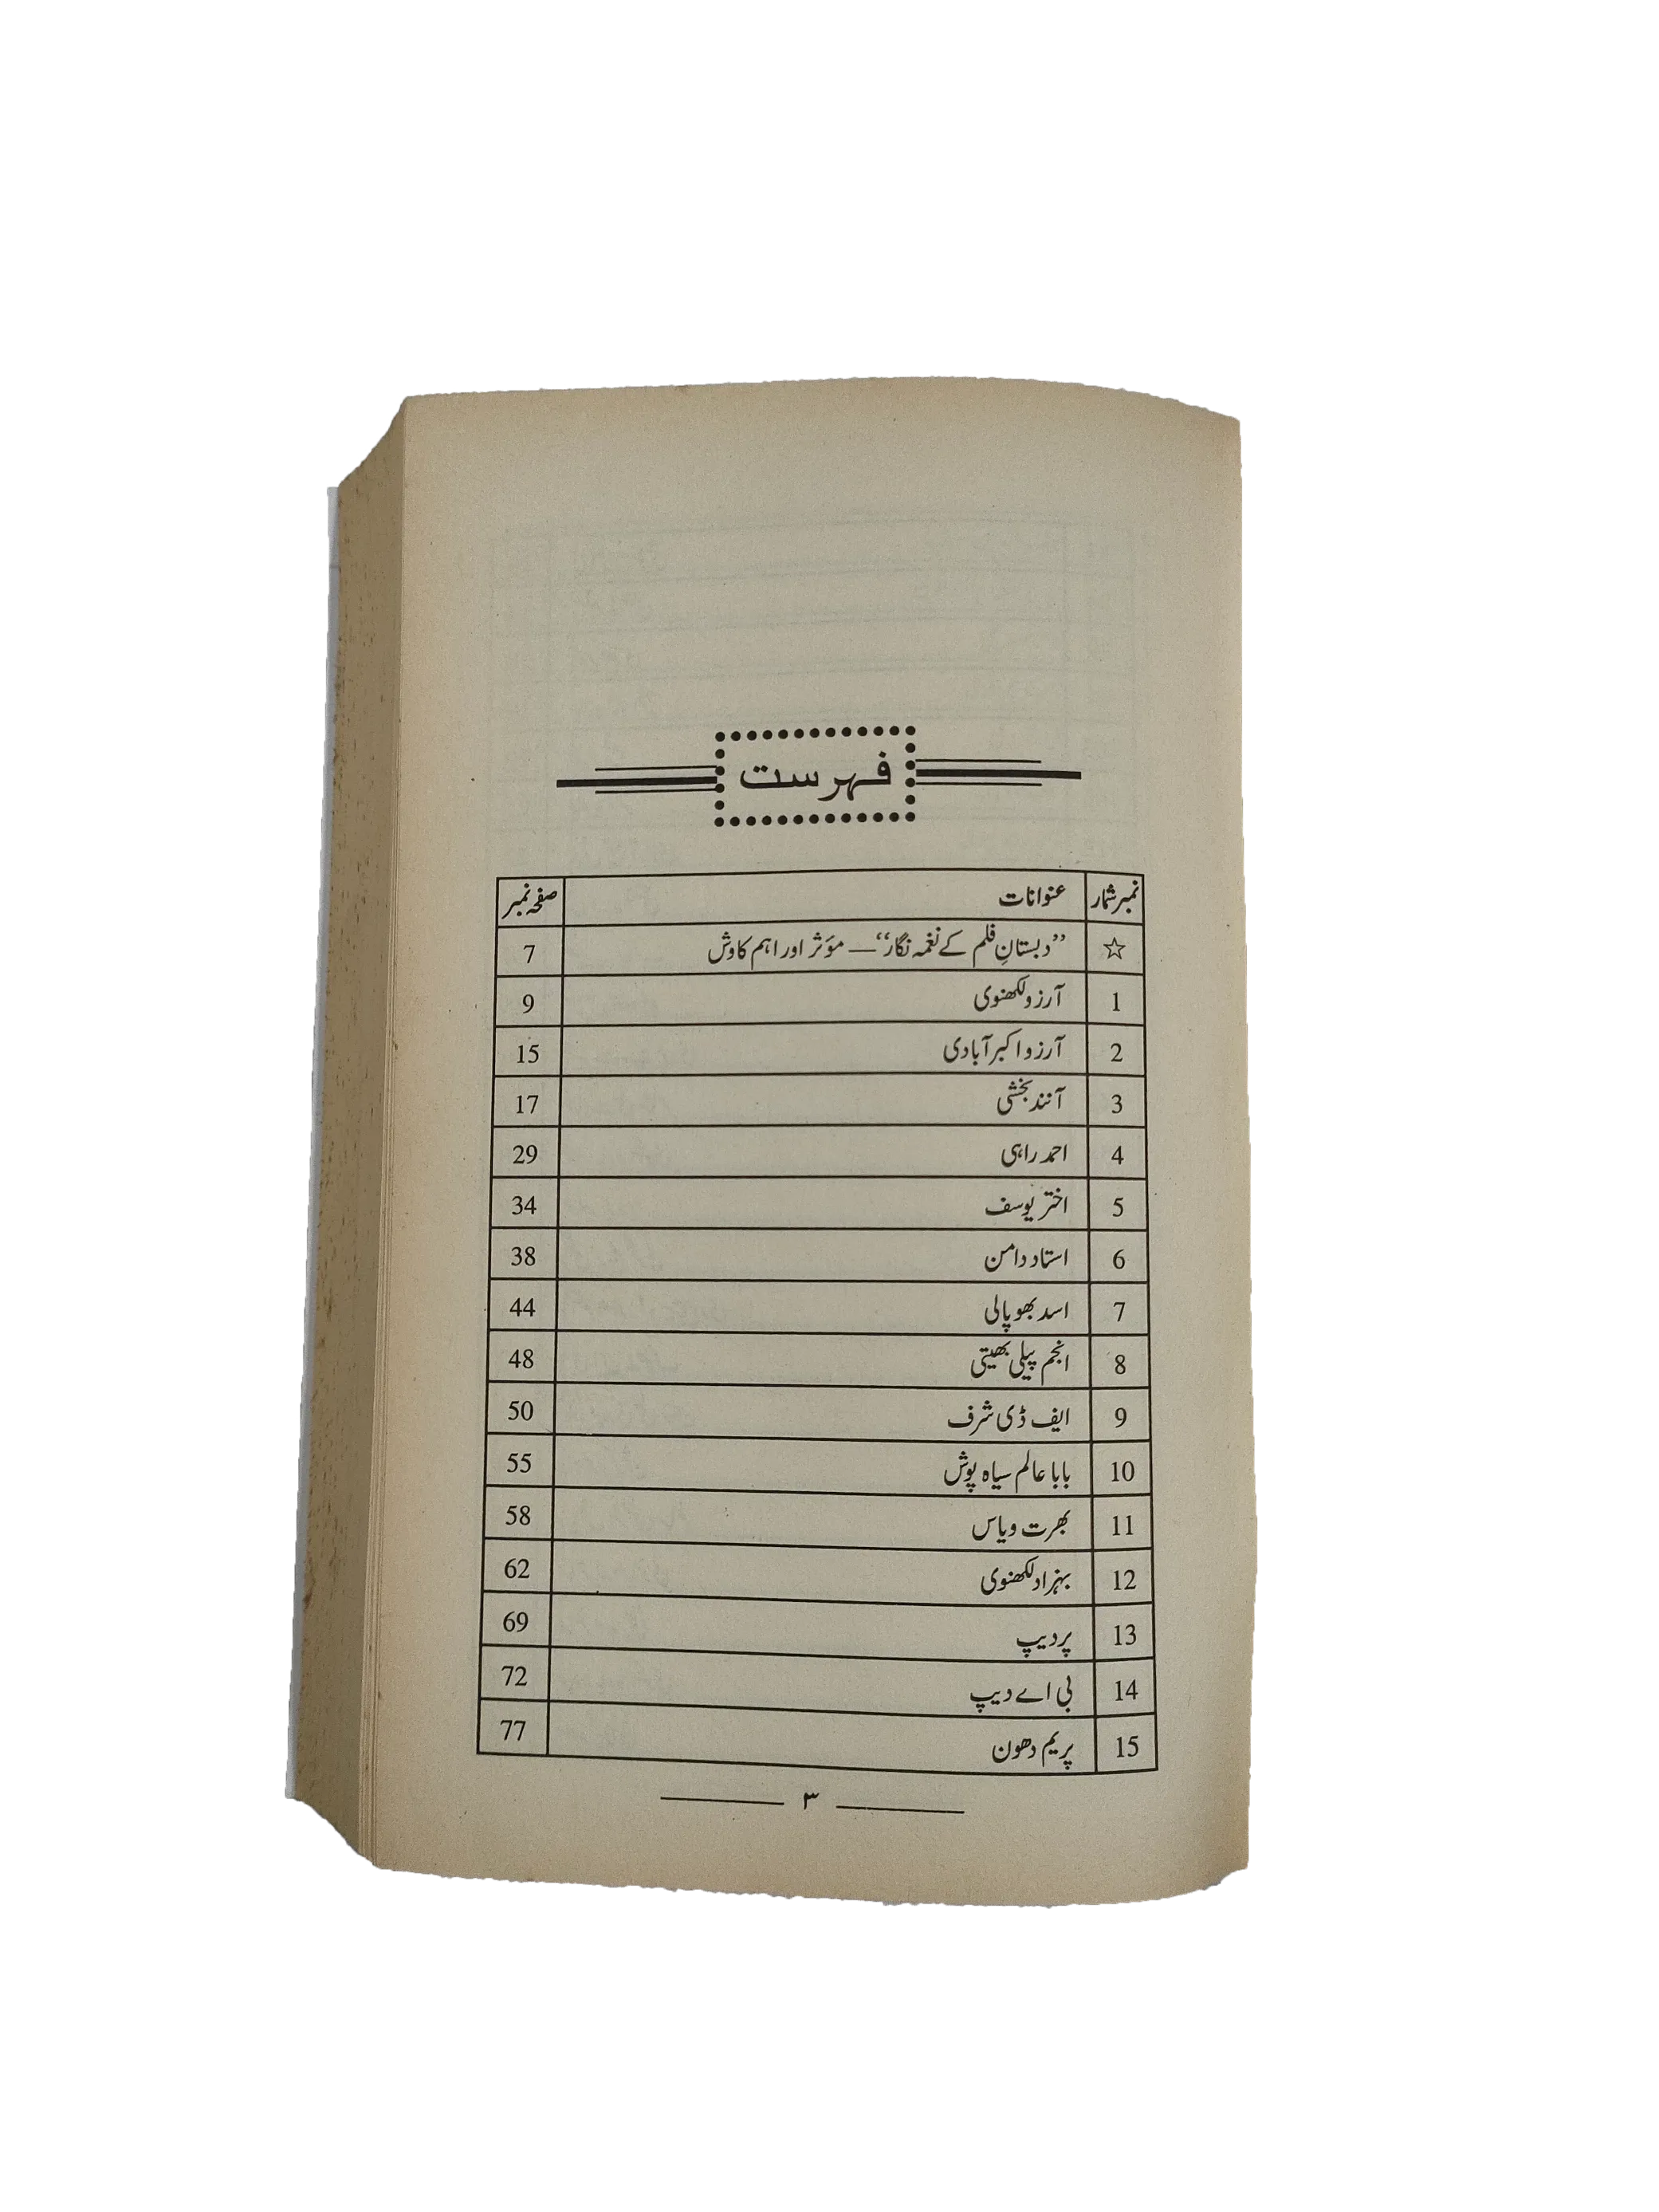 فہرست
نمبر شمار عنوانات صفحہ نمبر
☆ ’’دبستانِ فلم کے نغمہ نگار‘‘ — مؤثر اور اہم کاوش 7
1 آرزو لکھنوی 9
2 آرزو اکبر آبادی 15
3 آنند بخشی 17
4 احمد راہی 29
5 اختر یوسف 34
6 استاد دامن 38
7 اسد بھوپالی 44
8 انجم پیلی بھیتی 48
9 ایف ڈی شرف 50
10 بابا عالم سیاہ پوش 55
11 بھرت ویاس 58
12 بہزاد لکھنوی 62
13 پردیپ 69
14 بی اے دیپ 72
15 پریم دھون 77
۳